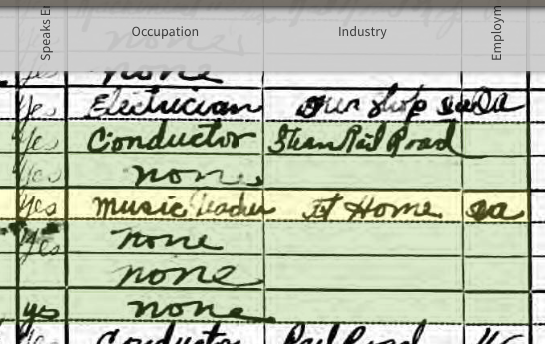 Speaks E Occupation Industry Employm
none
yes none
Yes Electrician own shop OA
Yes Conductor Steam Rail Road
Yes none
yes music teacher At Home oa
Yes none
none
yes none
Yes Conductor Rail Road